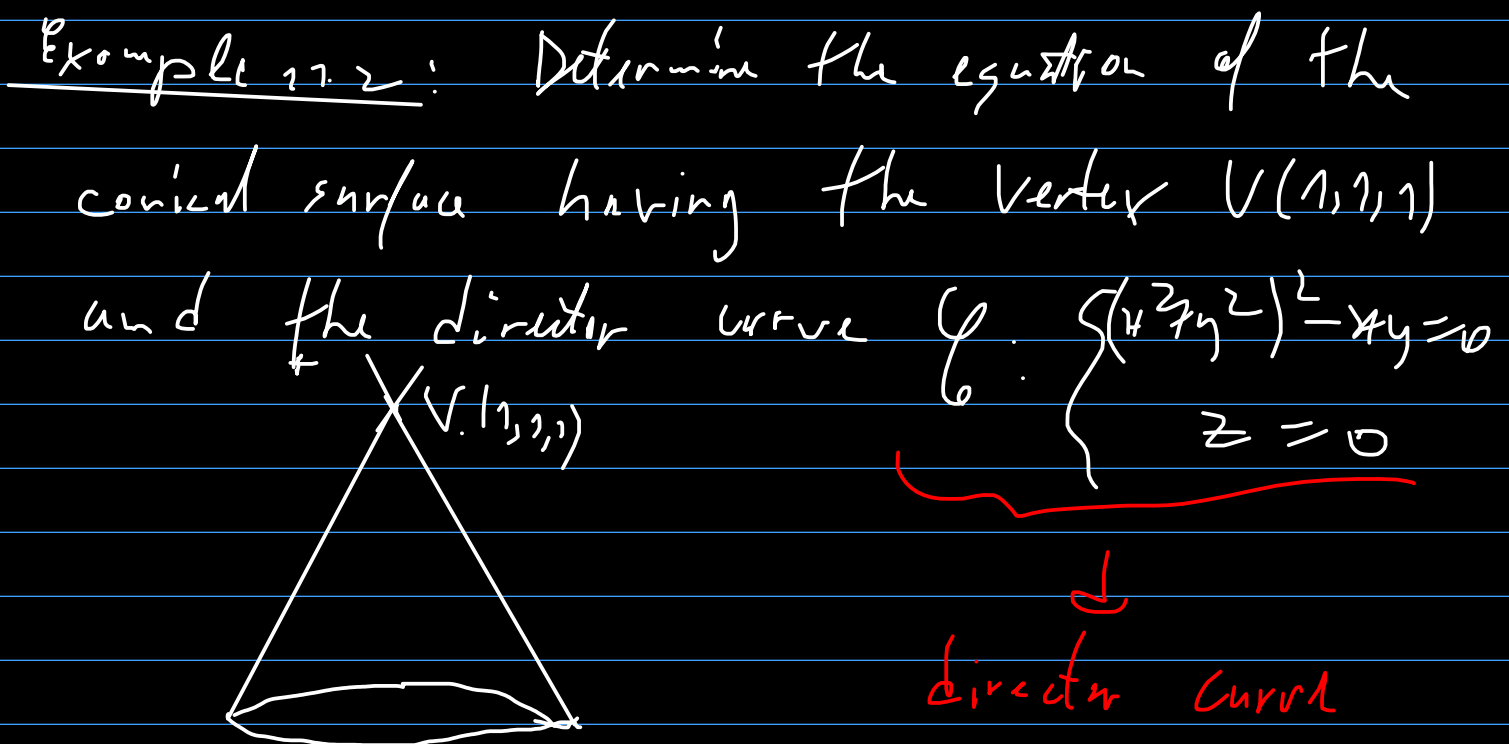 Example 11.2: Determine the equation of the
conical surface having the vertex V(1,1,1)
and the director curve C: {(x²+y²)²-xy=0
z=0
V(1,1,1)
director curve